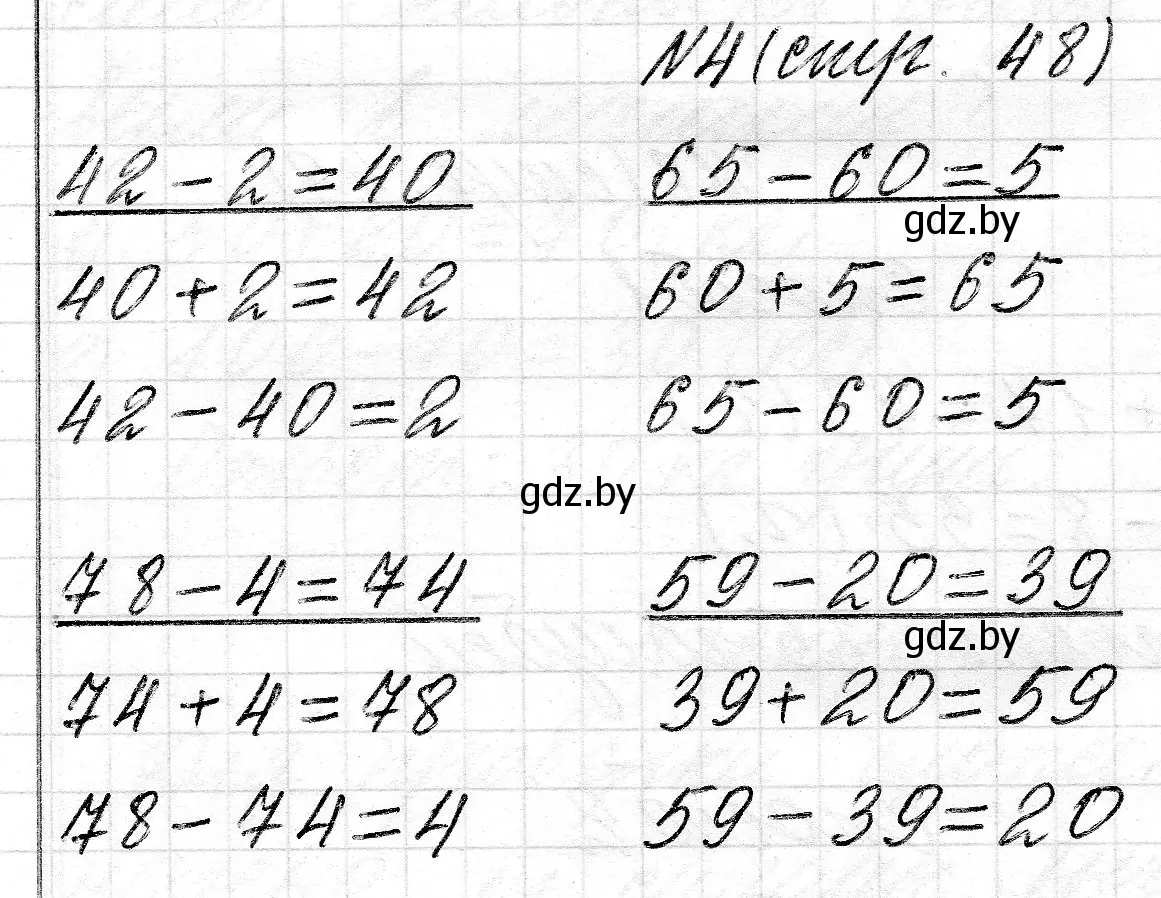 №4 (стр. 48)
42 - 2 = 40
65 - 60 = 5
gdz.by
40 + 2 = 42
60 + 5 = 65
42 - 40 = 2
65 - 60 = 5
gdz.by
78 - 4 = 74
59 - 20 = 39
gdz.by
74 + 4 = 78
39 + 20 = 59
78 - 74 = 4
59 - 39 = 20